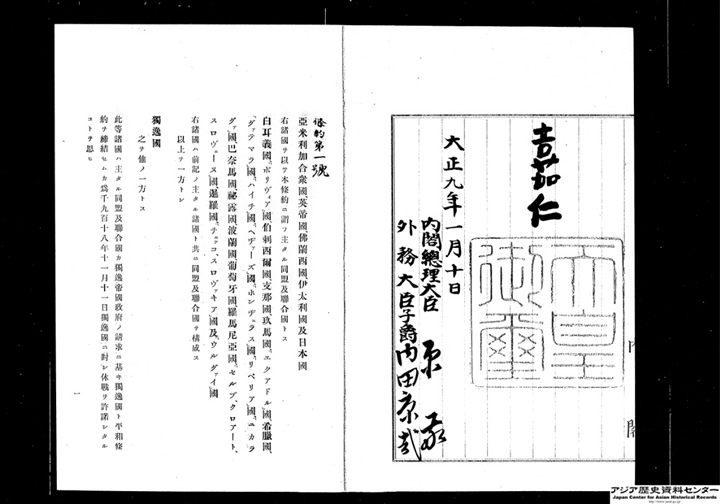 嘉仁
天皇御璽
大正九年一月十日
內閣總理大臣 原敬
外務大臣子爵內田康哉
內閣
條約第一號
亞米利加合衆國、英帝國、佛蘭西國、伊太利國及日本國
右諸國ヲ以テ本條約ニ謂フ主タル同盟及聯合國トス
白耳義國、ボリヴィア國、伯剌西爾國、支那國、玖馬國、エクアドル國、希臘國、
グァテマラ國、ハイチ國、ヘヂャーズ國、ホンデュラス國、リベリア國、ニカラ
グァ國、巴奈馬國、祕露國、波蘭國、葡萄牙國、羅馬尼亞國、セルブ、クロアート、
スロヴェーヌ國、暹羅國、チェッコ、スロヴァキア國及ウルグァイ國
右諸國ハ前記ノ主タル諸國ト共ニ同盟及聯合國ヲ構成ス
以上ヲ一方トシ
獨逸國
之ヲ他ノ一方トス
此等諸國ハ主タル同盟及聯合國カ獨逸帝國政府ノ請求ニ基キ獨逸國ト平和條
約ヲ締結セムカ爲千九百十八年十一月十一日獨逸國ニ對シ休戰ヲ許諾シタル
コトヲ思ヒ
一
アジア歴史資料センター
Japan Center for Asian Historical Records
http://www.jacar.go.jp/